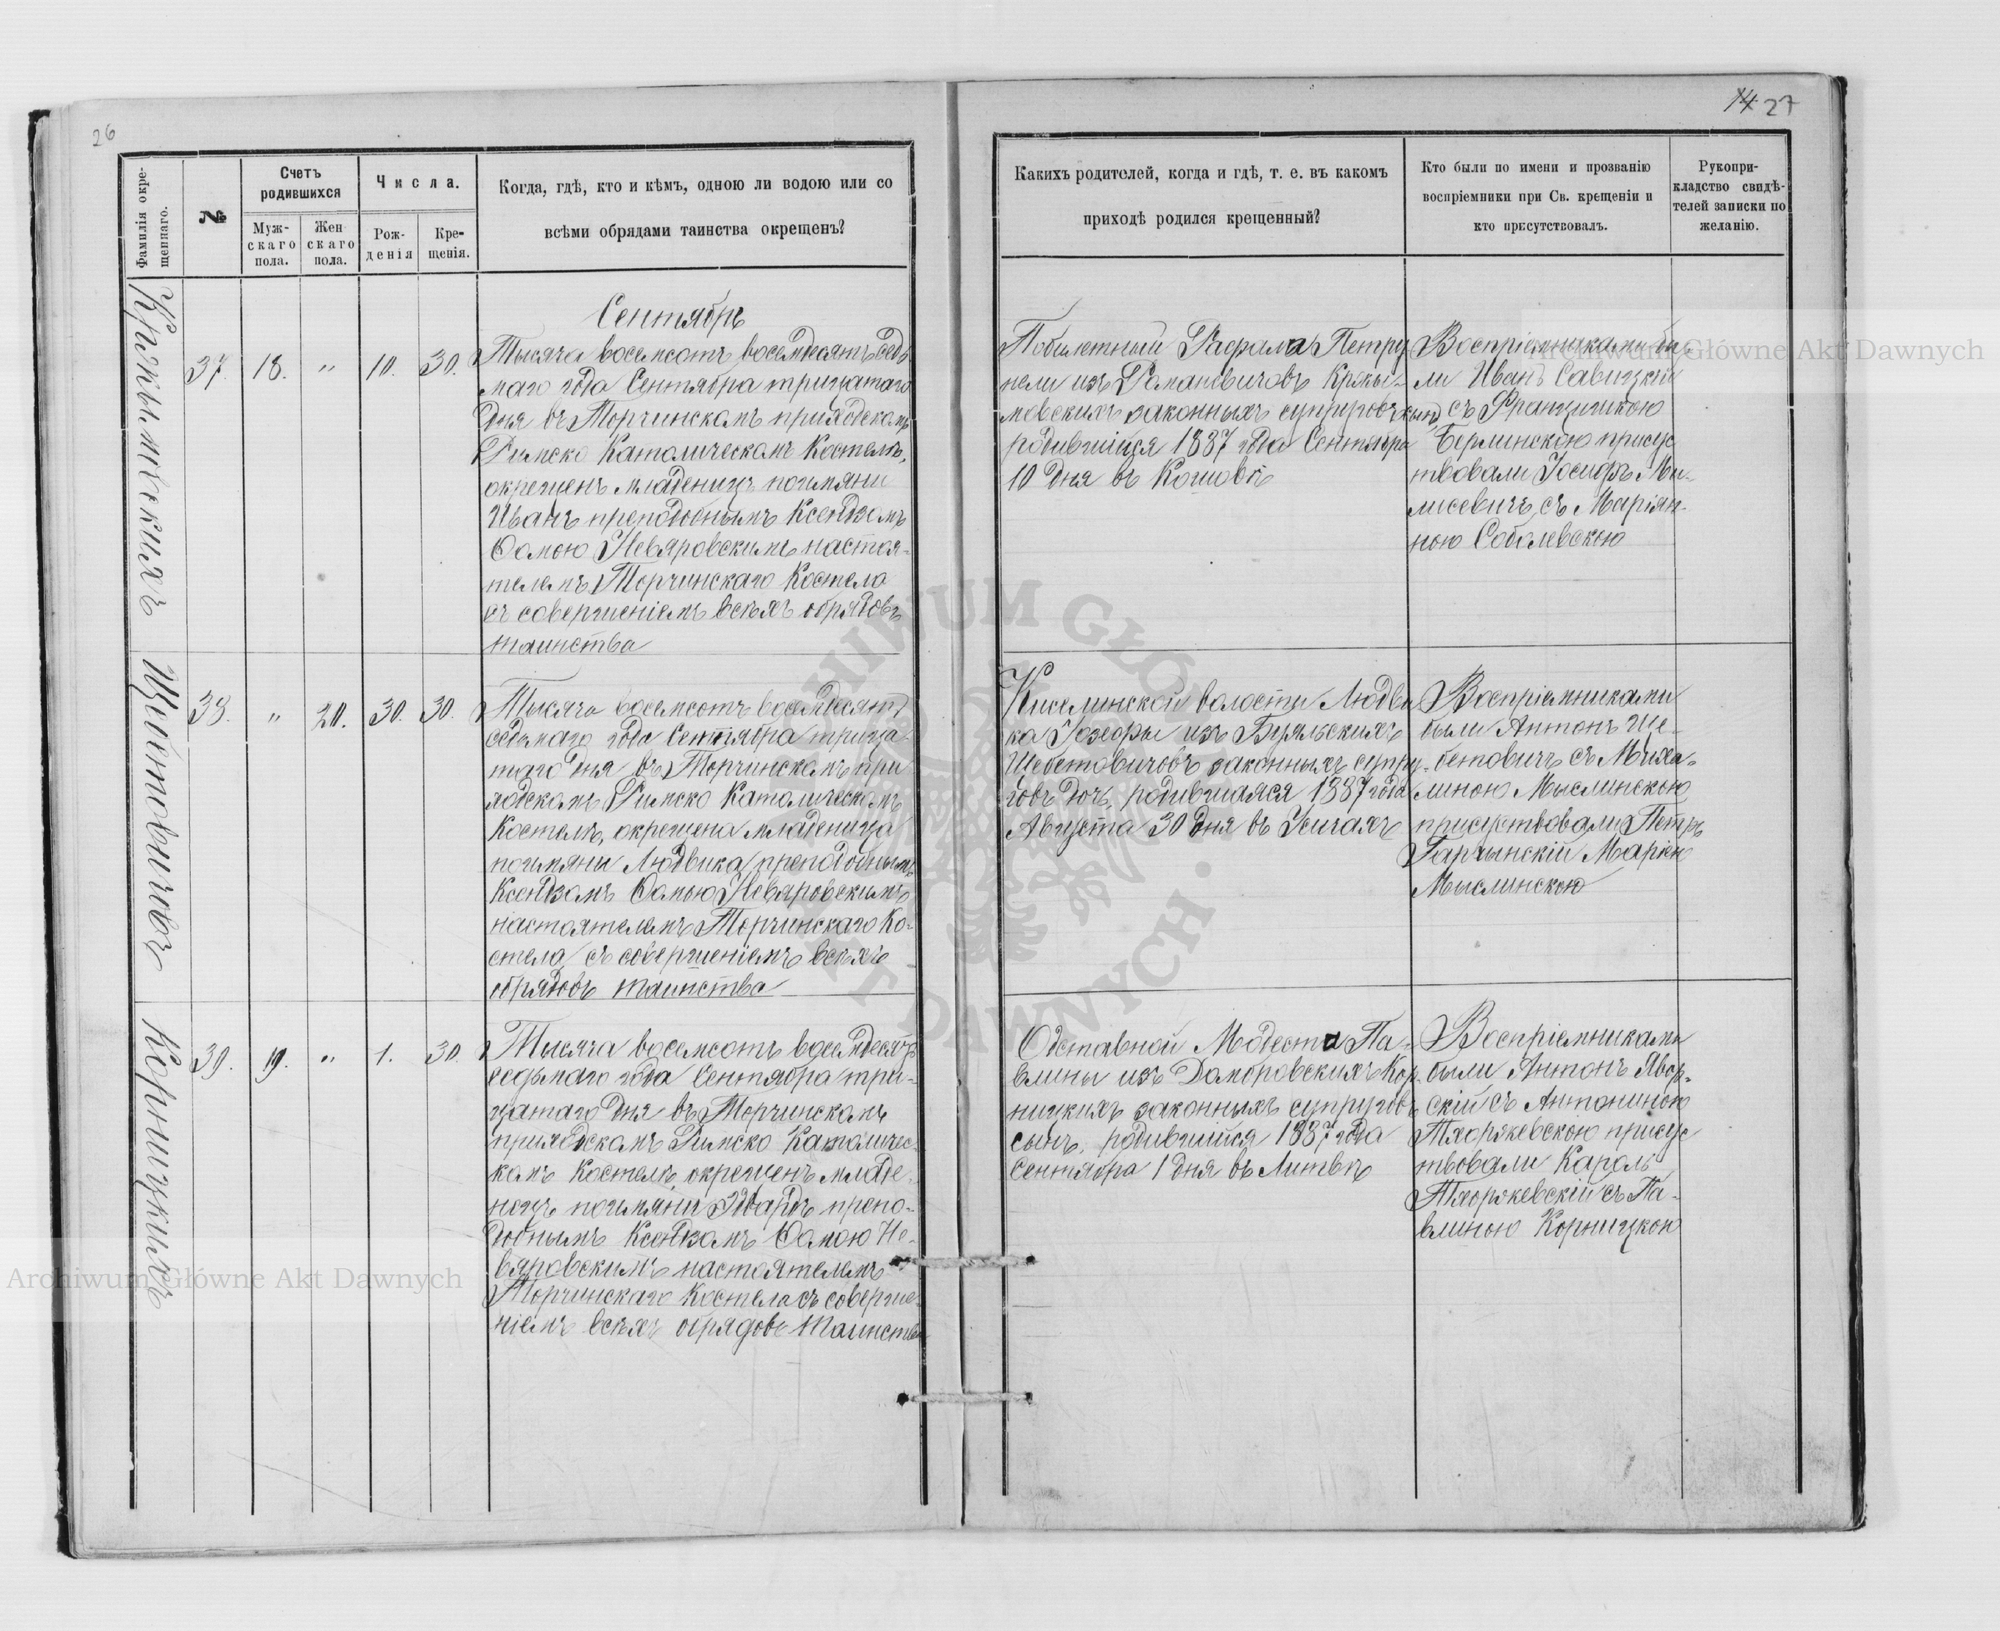 26
Фамилія окре-
щеннаго.
№
Счетъ
родившихся
Муж-
скаго
пола.
Жен
скаго
пола.
Числа.
Рож-
денія
Кре-
щенія.
Когда, гдѣ, кто и кѣмъ, одною ли водою или со
всѣми обрядами таинства окрещенъ?
Сентябрь
37. 18. " 10. 30.
Тысяча восемсотъ восемдесятъ седь
маго года Сентября тридцатаго
дня въ Торчинскомъ приходскомъ
Римско Католическомъ Костелѣ,
окрещенъ младенецъ поимяни
Иванъ преподобнымъ Ксендзомъ
Ѳомою Невяровскимъ настоя-
телемъ Торчинскаго Костела
съ совершеніемъ всѣхъ обрядовъ
таинства
Щебетовичовъ
38. " 20. 30. 30.
Тысяча восемсотъ восемдесятъ
седьмаго года Сентября трица-
таго дня въ Торчинскомъ при
ходскомъ Римско Католическомъ
Костелѣ, окрещена младеница
поимяни Людвика преподобнымъ
Ксендзомъ Ѳомою Невяровскимъ
настоятелемъ Торчинскаго Ко-
стела съ совершеніемъ всѣхъ
обрядовъ таинства
Корницкихъ
39. 19. " 1. 30.
Тысяча восемсотъ восемдесятъ
седьмаго года Сентября три-
цатаго дня въ Торчинскомъ
приходскомъ Римско Католичес-
комъ Костелѣ, окрещенъ младе-
нецъ поимяни Эдвардъ препо-
добнымъ Ксендзомъ Ѳомою Не-
вяровскимъ настоятелемъ
Торчинскаго Костела съ соверше-
ніемъ всѣхъ обрядовъ таинства
27
Какихъ родителей, когда и гдѣ, т. е. въ какомъ
приходѣ родился крещенный?
Кто были по имени и прозванію
воспріемники при Св. крещеніи и
кто присутствовалъ.
Рукопри-
кладство свидѣ-
телей записки по
желанію.
Побилетный Рафала Петру
нели изъ Романовичовъ
законныхъ супруговъ сынъ,
родившійся 1887 года Сентября
10 дня въ Кошовѣ
Воспріемниками бы-
ли Иванъ Савицкій
съ Францишкою
Берлинскою присус
твовали Іосифъ
съ Маріян-
ною Соболевскою
Киселинской волости Людви
ка Іозефы изъ
Щебетовичовъ законныхъ супру-
говъ дочь, родившаяся 1887 года
Августа 30 дня въ Усичахъ
Воспріемниками
были Антонъ Ще-
бетовичъ съ Миха-
линою Мыслинскою
присуствовали Петръ
Гарчынскій Маріею
Мыслинскою
Отставной Модеста Па-
влины изъ Домбровскихъ Кор-
ницкихъ законныхъ супруговъ
сынъ, родившійся 1887 года
Сентября 1 дня въ Литвѣ
Воспріемниками
были Антонъ Явор-
скій съ Антониною
присус
твовали Кароль
съ Па-
влиною Корницкою
Archiwum Główne Akt Dawnych
Archiwum Główne Akt Dawnych
ARCHIWUM GŁÓWNE AKT DAWNYCH